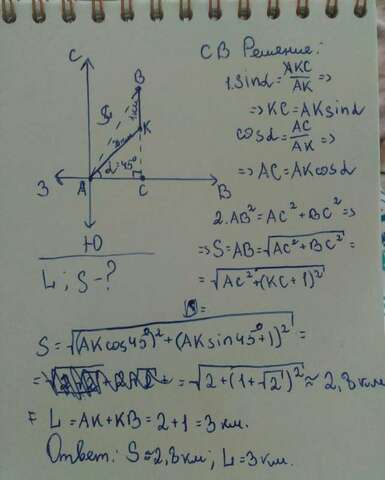 С
СВ Решение:
В
1км
S
К
2км
α=45°
З
А
С
В
Ю
L; S-?
1. sinα = KC/AK =>
=> KC = AK sinα
cosα = AC/AK =>
=> AC = AK cosα
2. AB² = AC² + BC² =>
=> S = AB = √(AC² + BC²) =
= √(AC² + (KC + 1)²)
S = √((AK cos45°)² + (AK sin45° + 1)²) =
= √(2 + (1 + √2)²) ≈ 2,8 км
L = AK + KB = 2 + 1 = 3 км.
Ответ: S ≈ 2,8 км; L = 3 км.